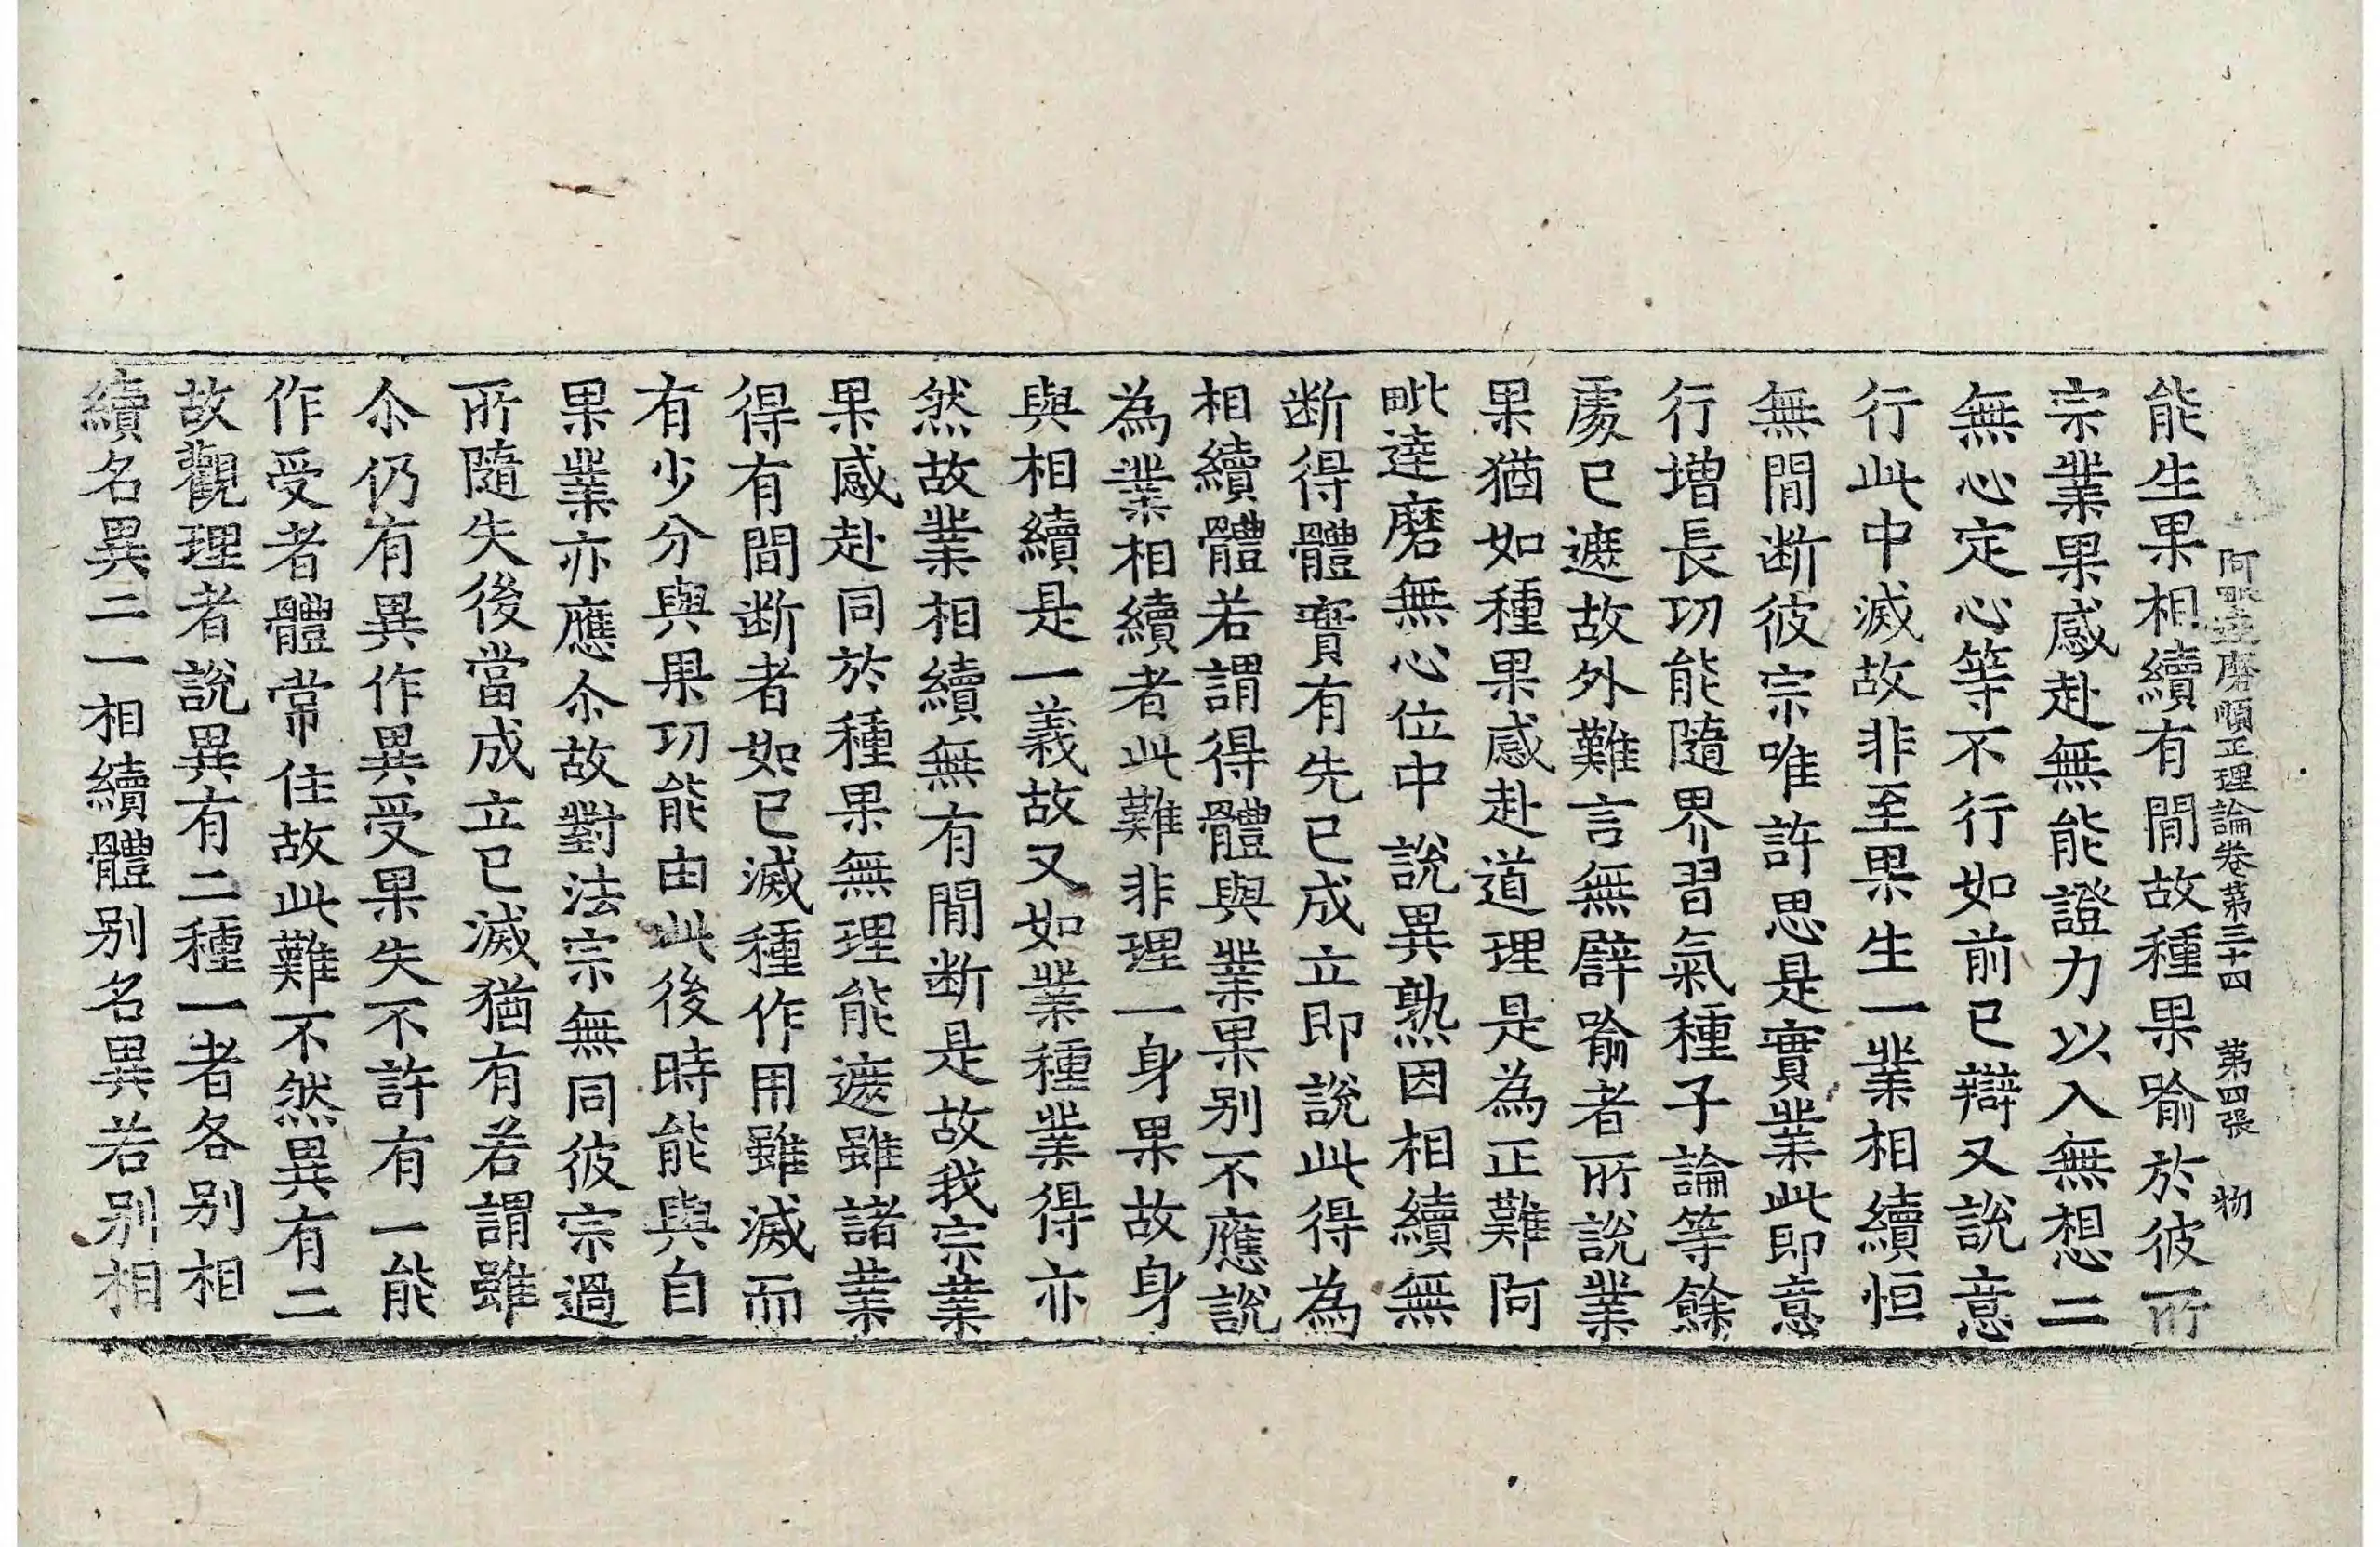 阿毗達磨順正理論卷第三十四　第四張　物
能生果相續有間故種果喻於彼所
宗業果感赴無能證力以入無想二
無心定心等不行如前已辯又說意
行此中滅故非至果生一業相續恒
無間断彼宗唯許思是實業此即意
行增長功能隨界習氣種子論等餘
處已遮故外難言無譬喻者所說業
果猶如種果感赴道理是為正難阿
毗達磨無心位中說異熟因相續無
断得體實有先已成立即說此得為
相續體若謂得體與業果别不應說
為業相續者此難非理一身果故身
與相續是一義故又如業種業得亦
然故業相續無有間断是故我宗業
果感赴同於種果無理能遮雖諸業
得有間断者如已滅種作用雖滅而
有少分與果功能由此後時能與自
果業亦應尒故對法宗無同彼宗過
所隨失後當成立已滅猶有若謂雖
尒仍有異作異受果失不許有一能
作受者體常住故此難不然異有二
故觀理者說異有二種一者各别相
續名異二一相續體别名異若别相